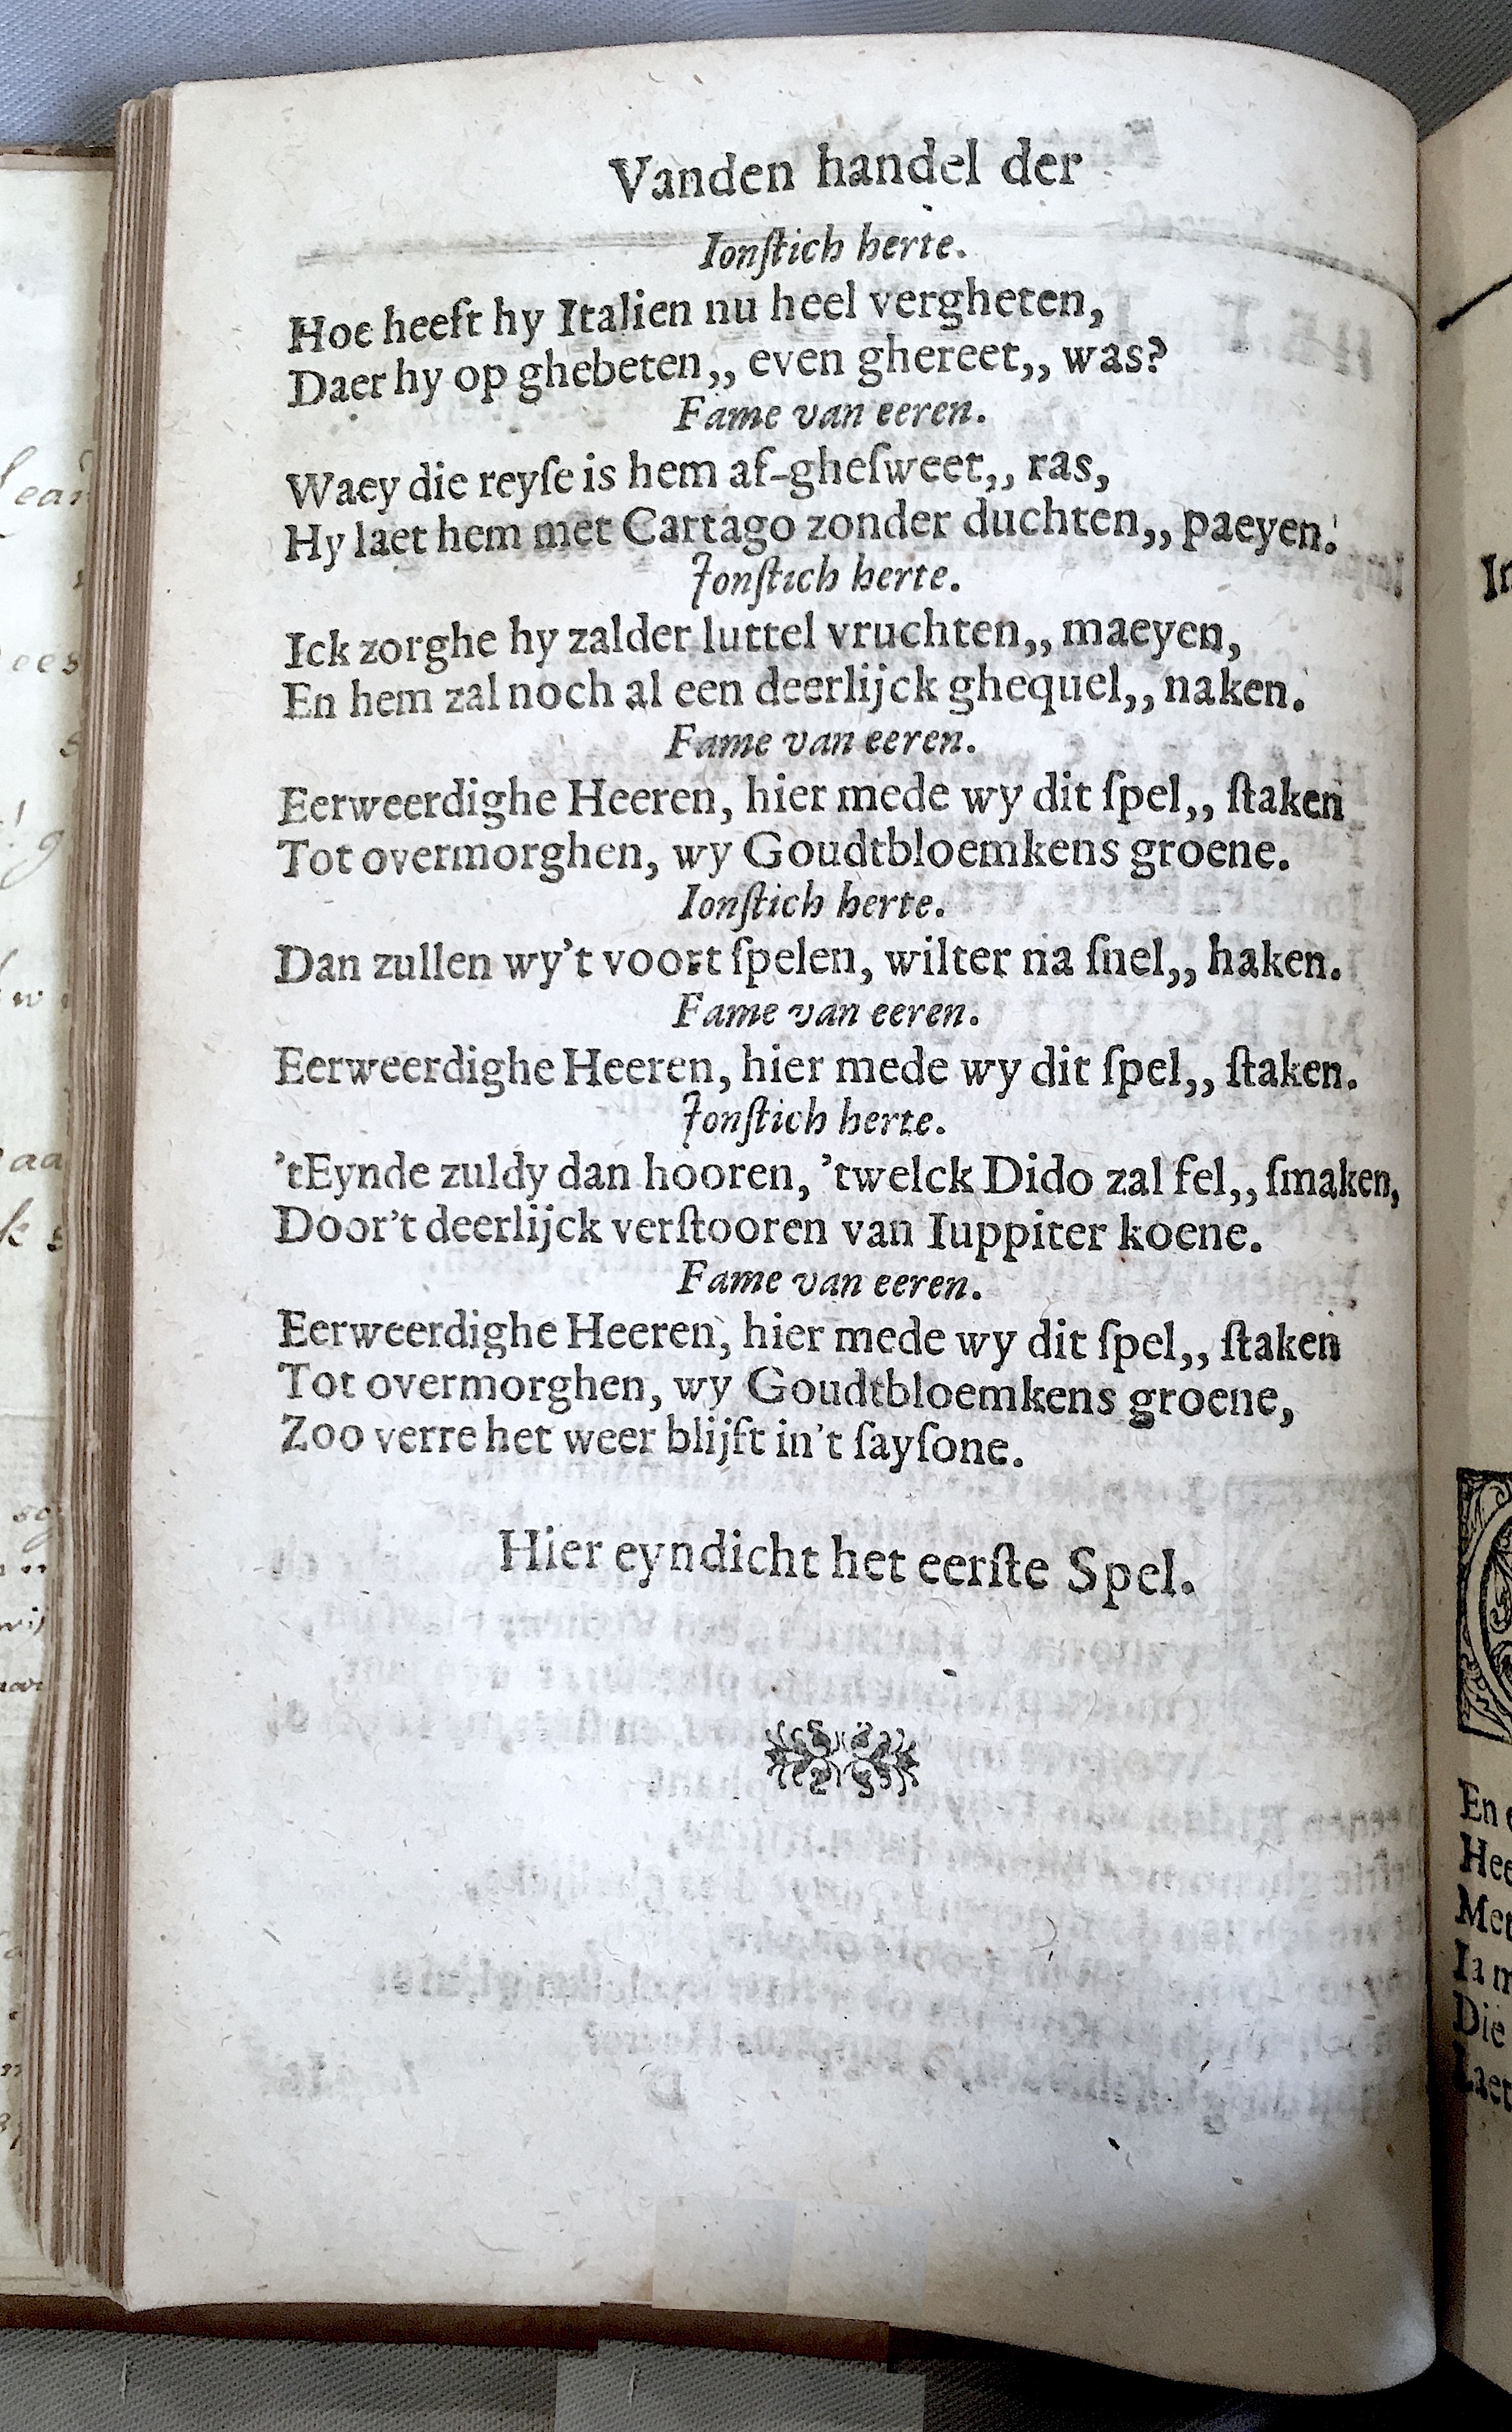 Vanden handel der
Ionſtich herte.
Hoe heeft hy Italien nu heel vergheten,
Daer hy op ghebeten,, even ghereet,, was?
Fame van eeren.
Waey die reyſe is hem af-gheſweet,, ras,
Hy laet hem met Cartago zonder duchten,, paeyen.
Jonſtich herte.
Ick zorghe hy zalder luttel vruchten,, maeyen,
En hem zal noch al een deerlijck ghequel,, naken.
Fame van eeren.
Eerweerdighe Heeren, hier mede wy dit ſpel,, ſtaken
Tot overmorghen, wy Goudtbloemkens groene.
Ionſtich herte.
Dan zullen wy't voort ſpelen, wilter na ſnel,, haken.
Fame van eeren.
Eerweerdighe Heeren, hier mede wy dit ſpel,, ſtaken.
Jonſtich herte.
'tEynde zuldy dan hooren, 'twelck Dido zal fel,, ſmaken,
Door't deerlijck verſtooren van Iuppiter koene.
Fame van eeren.
Eerweerdighe Heeren, hier mede wy dit ſpel,, ſtaken
Tot overmorghen, wy Goudtbloemkens groene,
Zoo verre het weer blijft in't ſayſone.
Hier eyndicht het eerſte Spel.
En
Hee
Met
Ia m
Die
Laet